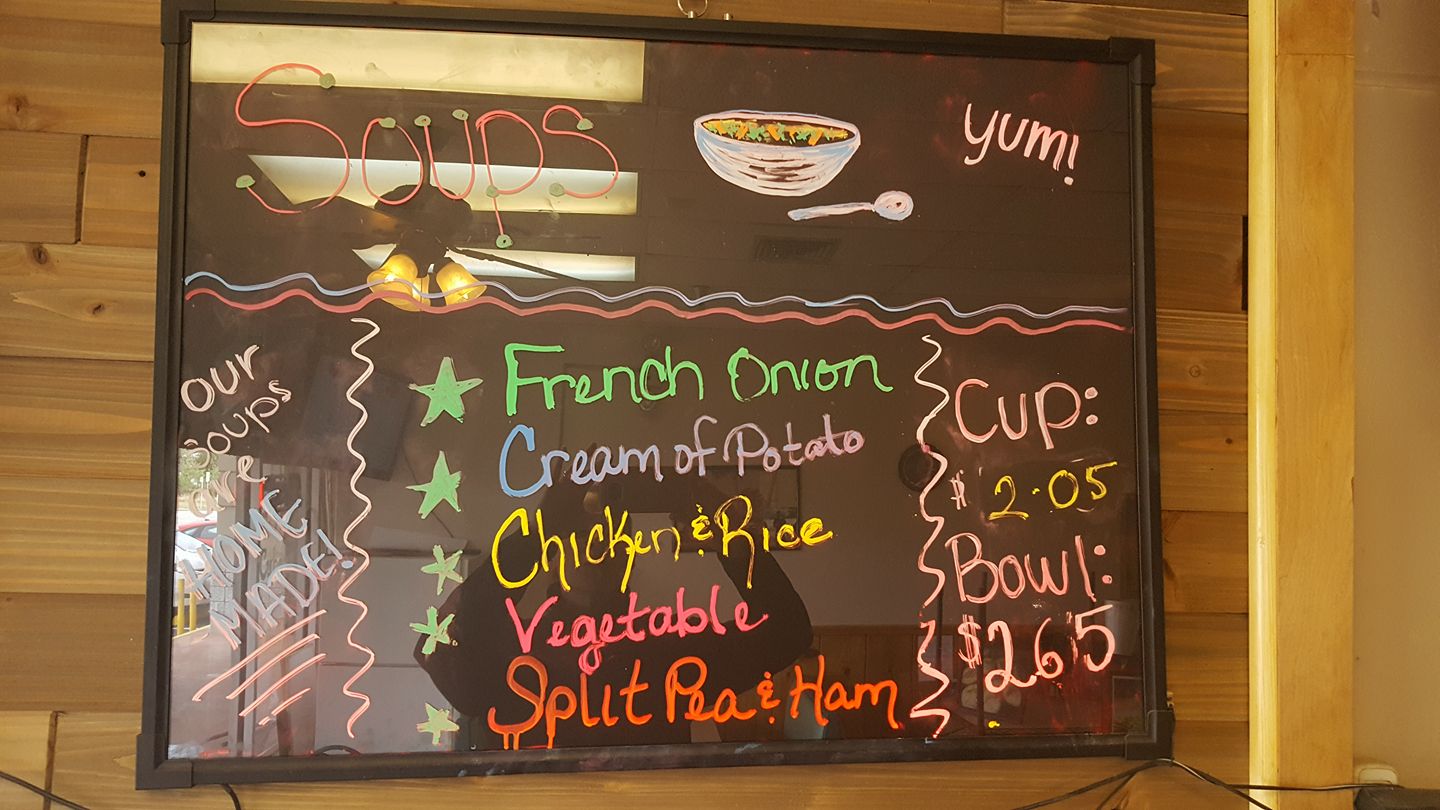 Soups
Yum!
Our
Soups
are
HOME
MADE!
French Onion
Cream of Potato
Chicken & Rice
Vegetable
Split Pea & Ham
Cup:
$ 2.05
Bowl:
$2.65